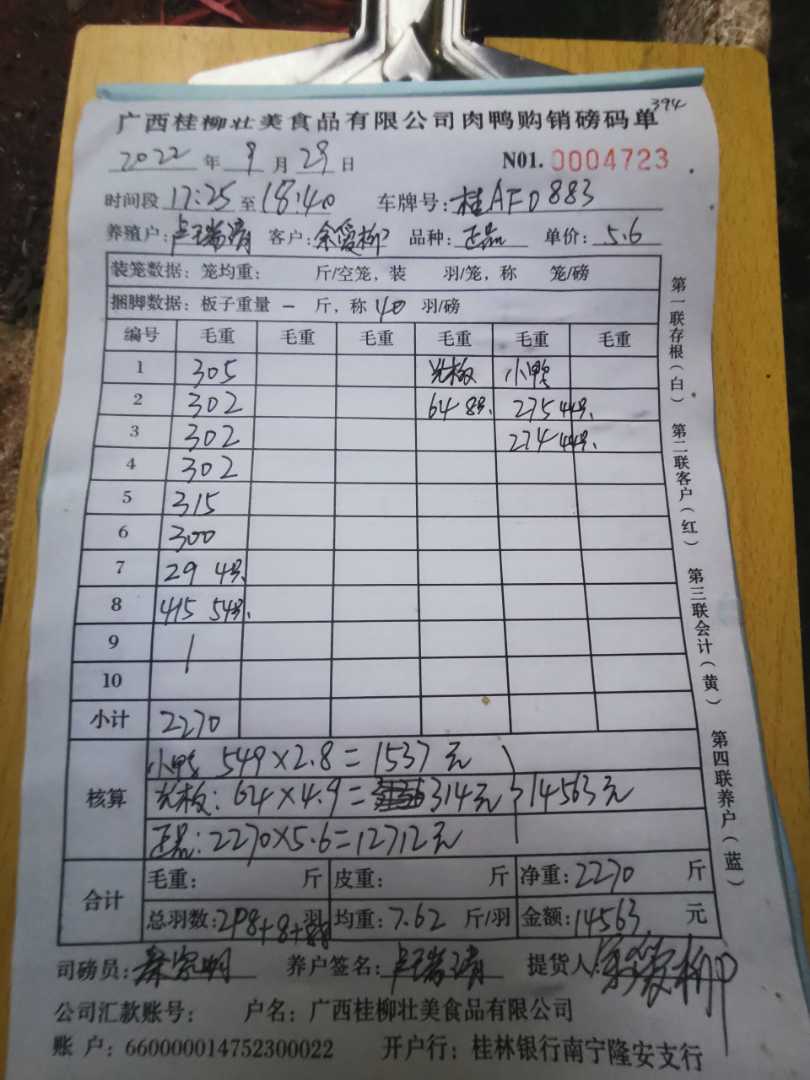 394
广西桂柳壮美食品有限公司肉鸭购销磅码单
2022 年 9 月 29 日 N01. 0004723
时间段 17:25 至 18:40 车牌号: 桂AFD883
养殖户: 卢瑞清 客户: 余爱柳 品种: 正品 单价: 5.6
装笼数据: 笼均重: 斤/空笼, 装 羽/笼, 称 笼/磅
捆脚数据: 板子重量 — 斤, 称 40 羽/磅
编号 毛重 毛重 毛重 毛重 毛重 毛重
1 305 光板 小鸭
2 302 64 8羽. 275 44羽.
3 302 274 44羽.
4 302
5 315
6 300
7 29 4羽.
8 415 54羽.
9
10
小计 2270
核算
小鸭 549×2.8=1537元
光板: 64×4.9=314元 14563元
正品: 2270×5.6=12712元
合计
毛重: 斤 皮重: 斤 净重: 2270 斤
总羽数: 298+8+88 羽 均重: 7.62 斤/羽 金额: 14563 元
司磅员: 养户签名: 卢瑞清 提货人: 余爱柳
公司汇款账号: 户名: 广西桂柳壮美食品有限公司
账 户: 660000014752300022 开户行: 桂林银行南宁隆安支行
第一联存根(白) 第二联客户(红) 第三联会计(黄) 第四联养户(蓝)